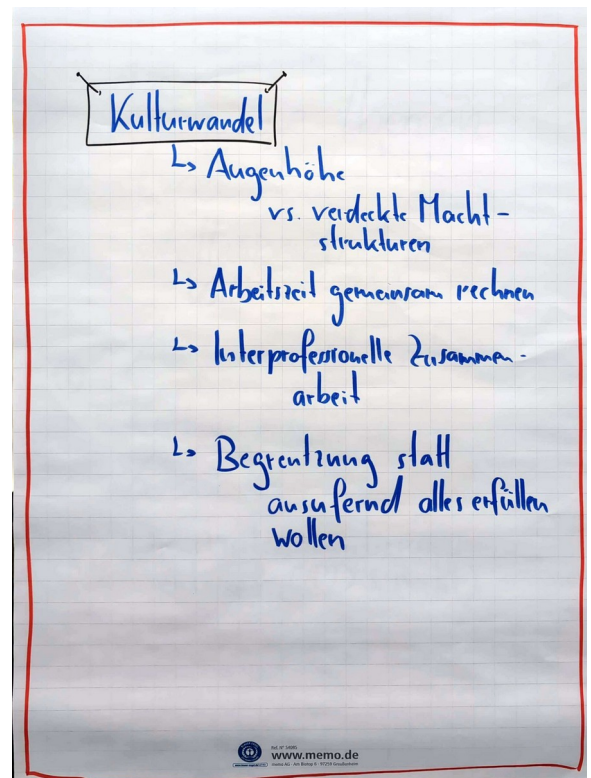 Kulturwandel
↳ Augenhöhe
vs. verdeckte Macht-
strukturen
↳ Arbeitszeit gemeinsam rechnen
↳ Interprofessionelle Zusammen-
arbeit
↳ Begrentzung statt
ausufernd alles erfüllen
wollen
www.memo.de